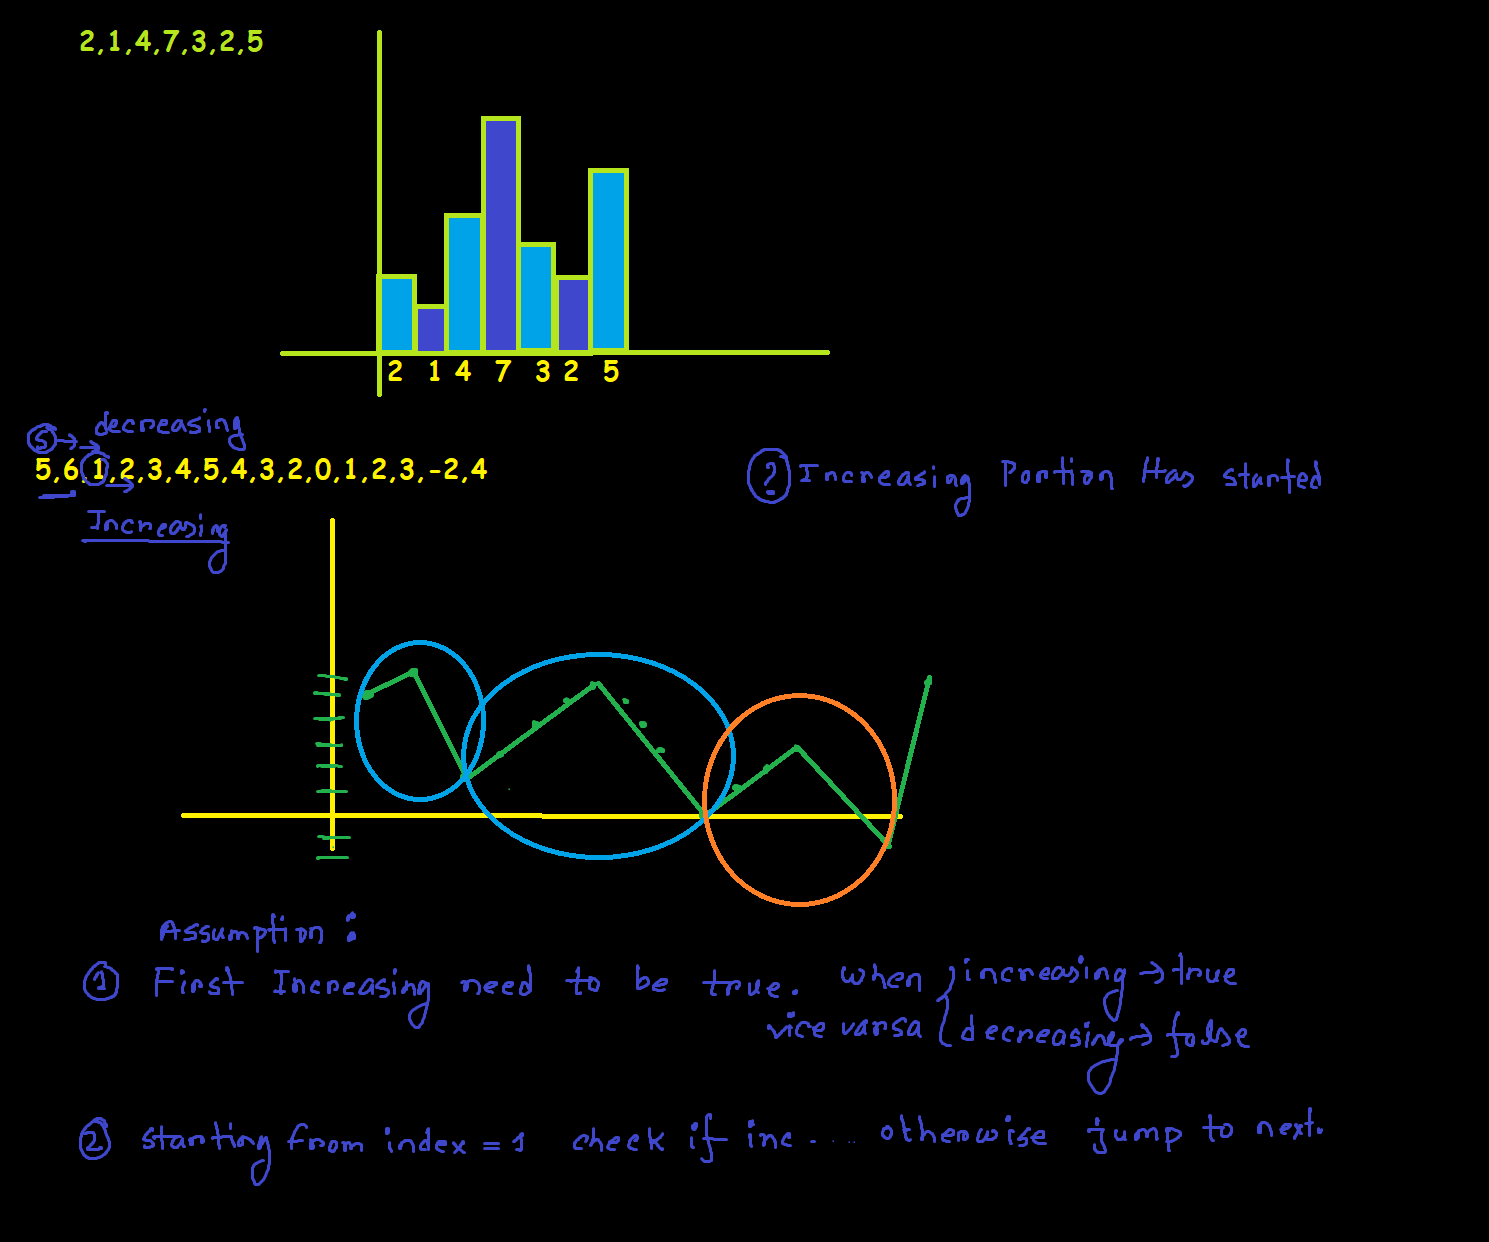 2,1,4,7,3,2,5
2 1 4 7 3 2 5
5 → → decreasing
5,6,1,2,3,4,5,4,3,2,0,1,2,3,-2,4
Increasing
? Increasing Portion Has started
Assumption :
1 First Increasing need to be true. when { increasing → true
vice varsa { decreasing → false
2 starting from index = 1 check if inc ..... otherwise jump to next.